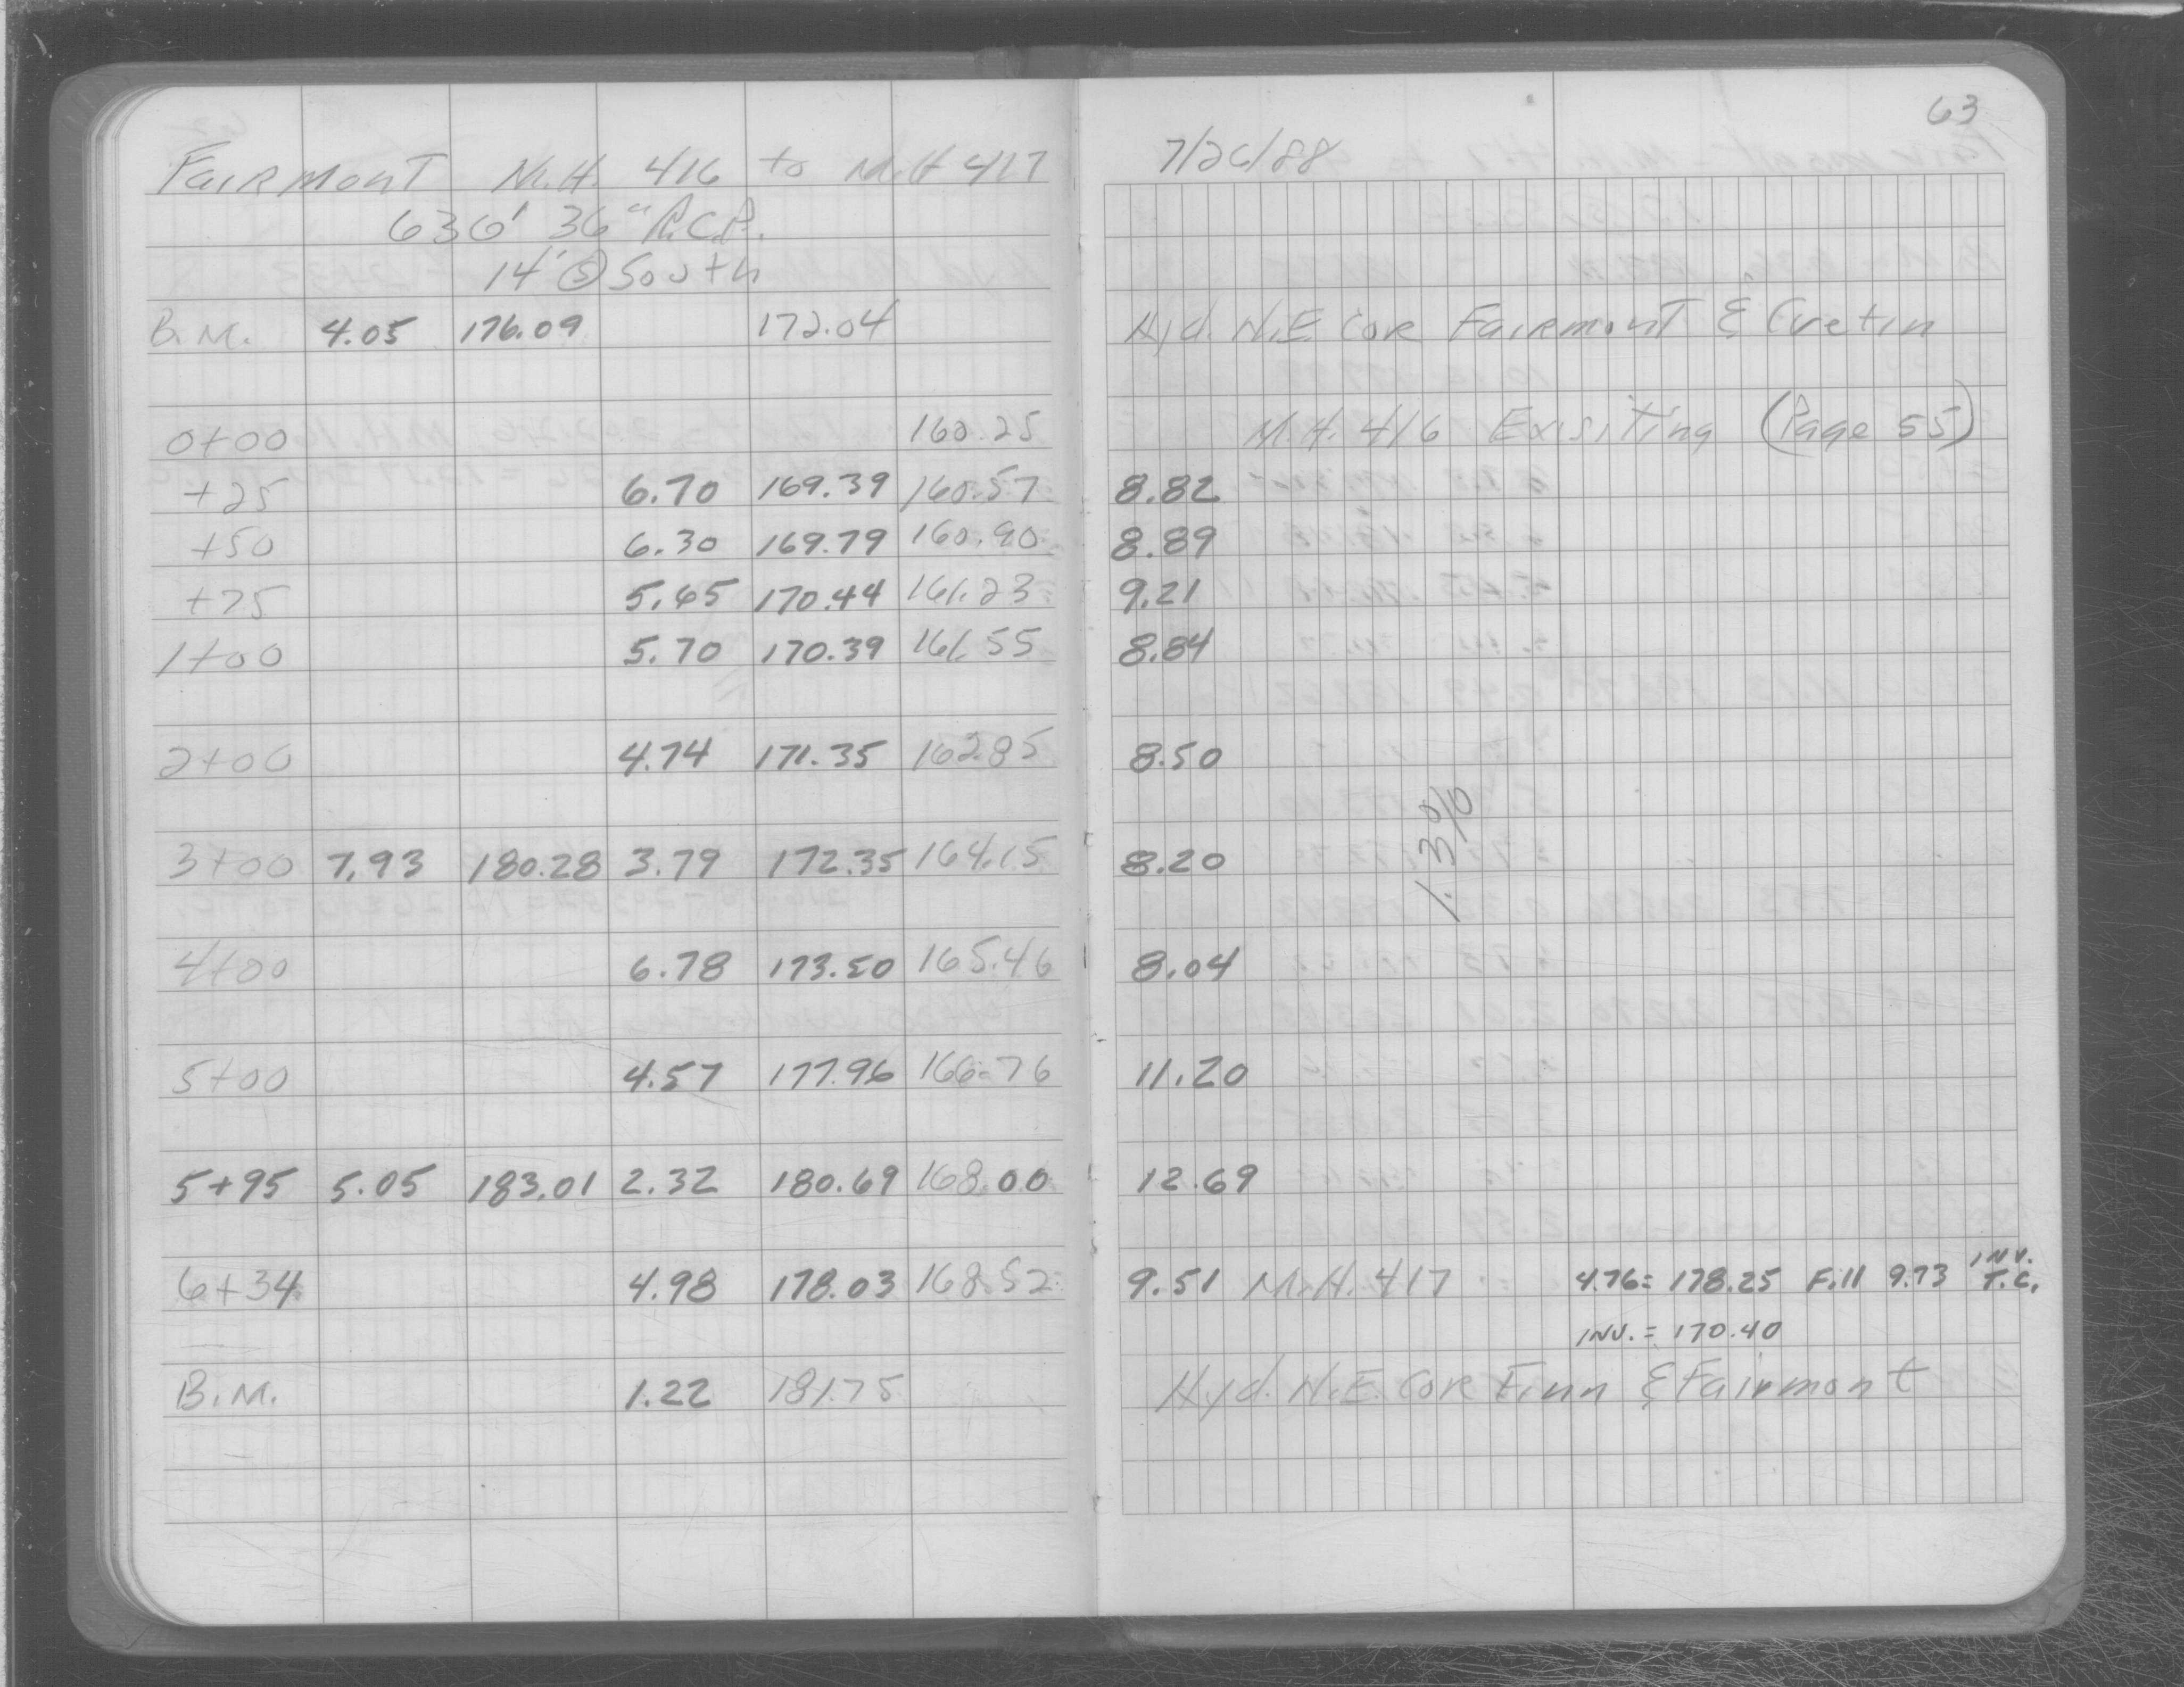 63
FAIRMONT M.H. 416 to M.H 417 7/26/88
630' 36" R.C.P.
14' Ⓢ South
B.M. 4.05 176.09 172.04 Hyd. N.E. COR FAIRMONT & Cretin
0+00 160.25 M.H. 416 Exisiting (Page 55)
+25 6.70 169.39 160.57 8.82
+50 6.30 169.79 160.90 8.89
+75 5.65 170.44 161.23 9.21
1+00 5.70 170.39 161.55 8.84
2+00 4.74 171.35 162.85 8.50
1.3%
3+00 7.93 180.28 3.79 172.35 164.15 8.20
4+00 6.78 173.50 165.46 8.04
5+00 4.57 177.96 166.76 11.20
5+95 5.05 183.01 2.32 180.69 168.00 12.69
6+34 4.98 178.03 168.52 9.51 M.H. 417 4.76= 178.25 Fill 9.73 INV. T.C.
INV. = 170.40
B.M. 1.22 181.75 Hyd. N.E. COR Finn & Fairmont